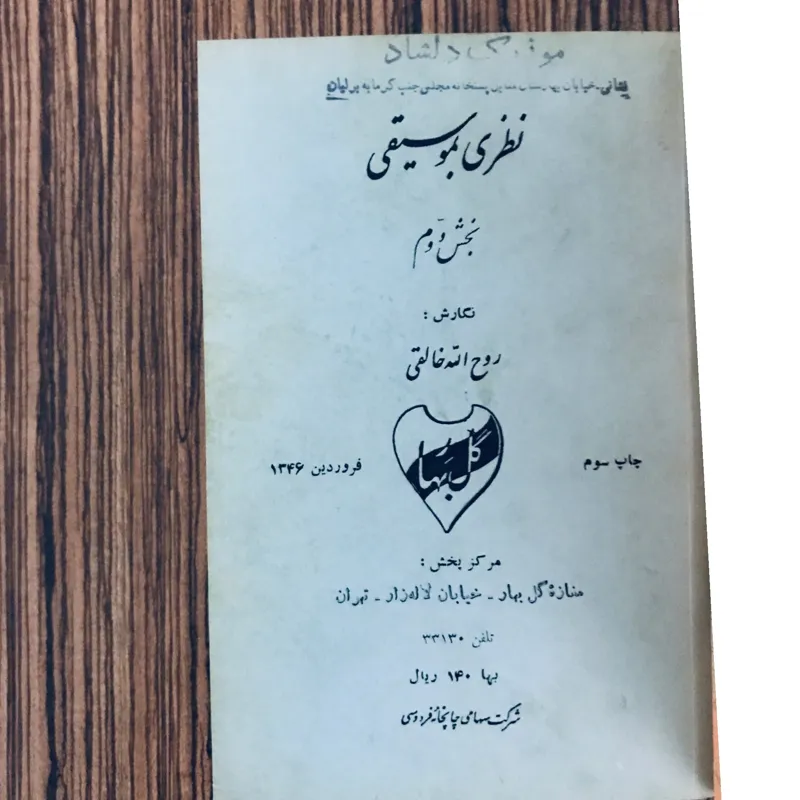 دلشاد
نظری بموسیقی
بخش دوم
نگارش :
روح الله خالقی
گل بهار
چاپ سوم
فروردین ۱۳۴۶
مرکز پخش :
مغازهٔ گل بهار - خیابان لاله‌زار - تهران
تلفن ۳۳۱۳۰
بها ۱۴۰ ریال
شرکت سهامی چاپخانهٔ فردوسی